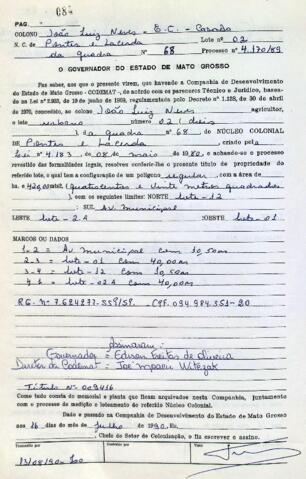 PAG. 082
COLONO João Luiz Neves - E.C. - Casado
N. C. de Pontes e Lacerda Lote nº 02
da quadra nº 68 Processo nº 4.170/89
O GOVERNADOR DO ESTADO DE MATO GROSSO
Faz saber, aos que o presente virem, que havendo a Companhia de Desenvolvimento
do Estado de Mato Grosso - CODEMAT -, de acordo com os pareceres Técnico e Jurídico, basea-
da na Lei nº 2.933, de 19 de junho de 1969, regulamentada pelo Decreto nº 1.138, de 30 de abril
de 1970, concedido ao colono, João Luiz Neves agricultor,
o lote urbano número 02 (dois
) da quadra nº 68 do NÚCLEO COLONIAL
de Pontes e Lacerda, criado pela
Lei 4.183 de 08 de maio de 1980, e achando-se o processo
revestido das formalidades legais, resolveu conferir-lhe o presente título de propriedade do
referido lote, o qual tem a configuração de um polígono regular, com a área de
420,00 (quatrocentos e vinte metros quadrados
), com os seguintes limites: NORTE lote-12
SUL Av. Municipal
LESTE lote-2.A OESTE lote-01
MARCOS OU DADOS
1-2 = Av Municipal com 10,50m
2-3 = lote-01 com 40,00m
3-4 = lote-12 com 10,50m
4-1 = lote-02A com 40,00m
RG. nº 7.624.237.559/SP. CPF. 094.984.351-20
Assinaram:
Governador = Edison Freitas de Oliveira
Diretor da Codemat =
Título Nº 009416
Como tudo consta do memorial e planta que ficam arquivados nesta Companhia, juntamente
com o processo de medição e loteamento do referido Núcleo Colonial.
Dado e passado na Companhia de Desenvolvimento do Estado de Mato Grosso
aos 16 dias do mês de Julho de 1990. Eu,
Chefe do Setor de Colonização, o fiz escrever e assino.
13/08/90